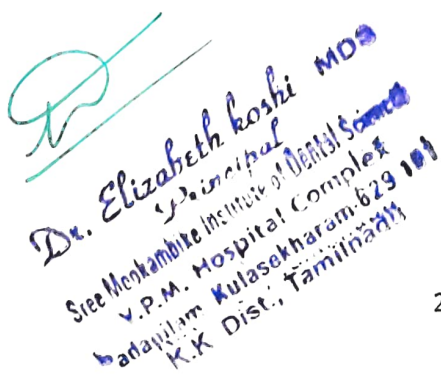 Dr. Elizabeth koshi MDS
Principal
Sree Mookambike Institute of Dental Science
V.P.M. Hospital Complex
padanilam Kulasekharam-629 161
K.K Dist., Tamilnadu
2